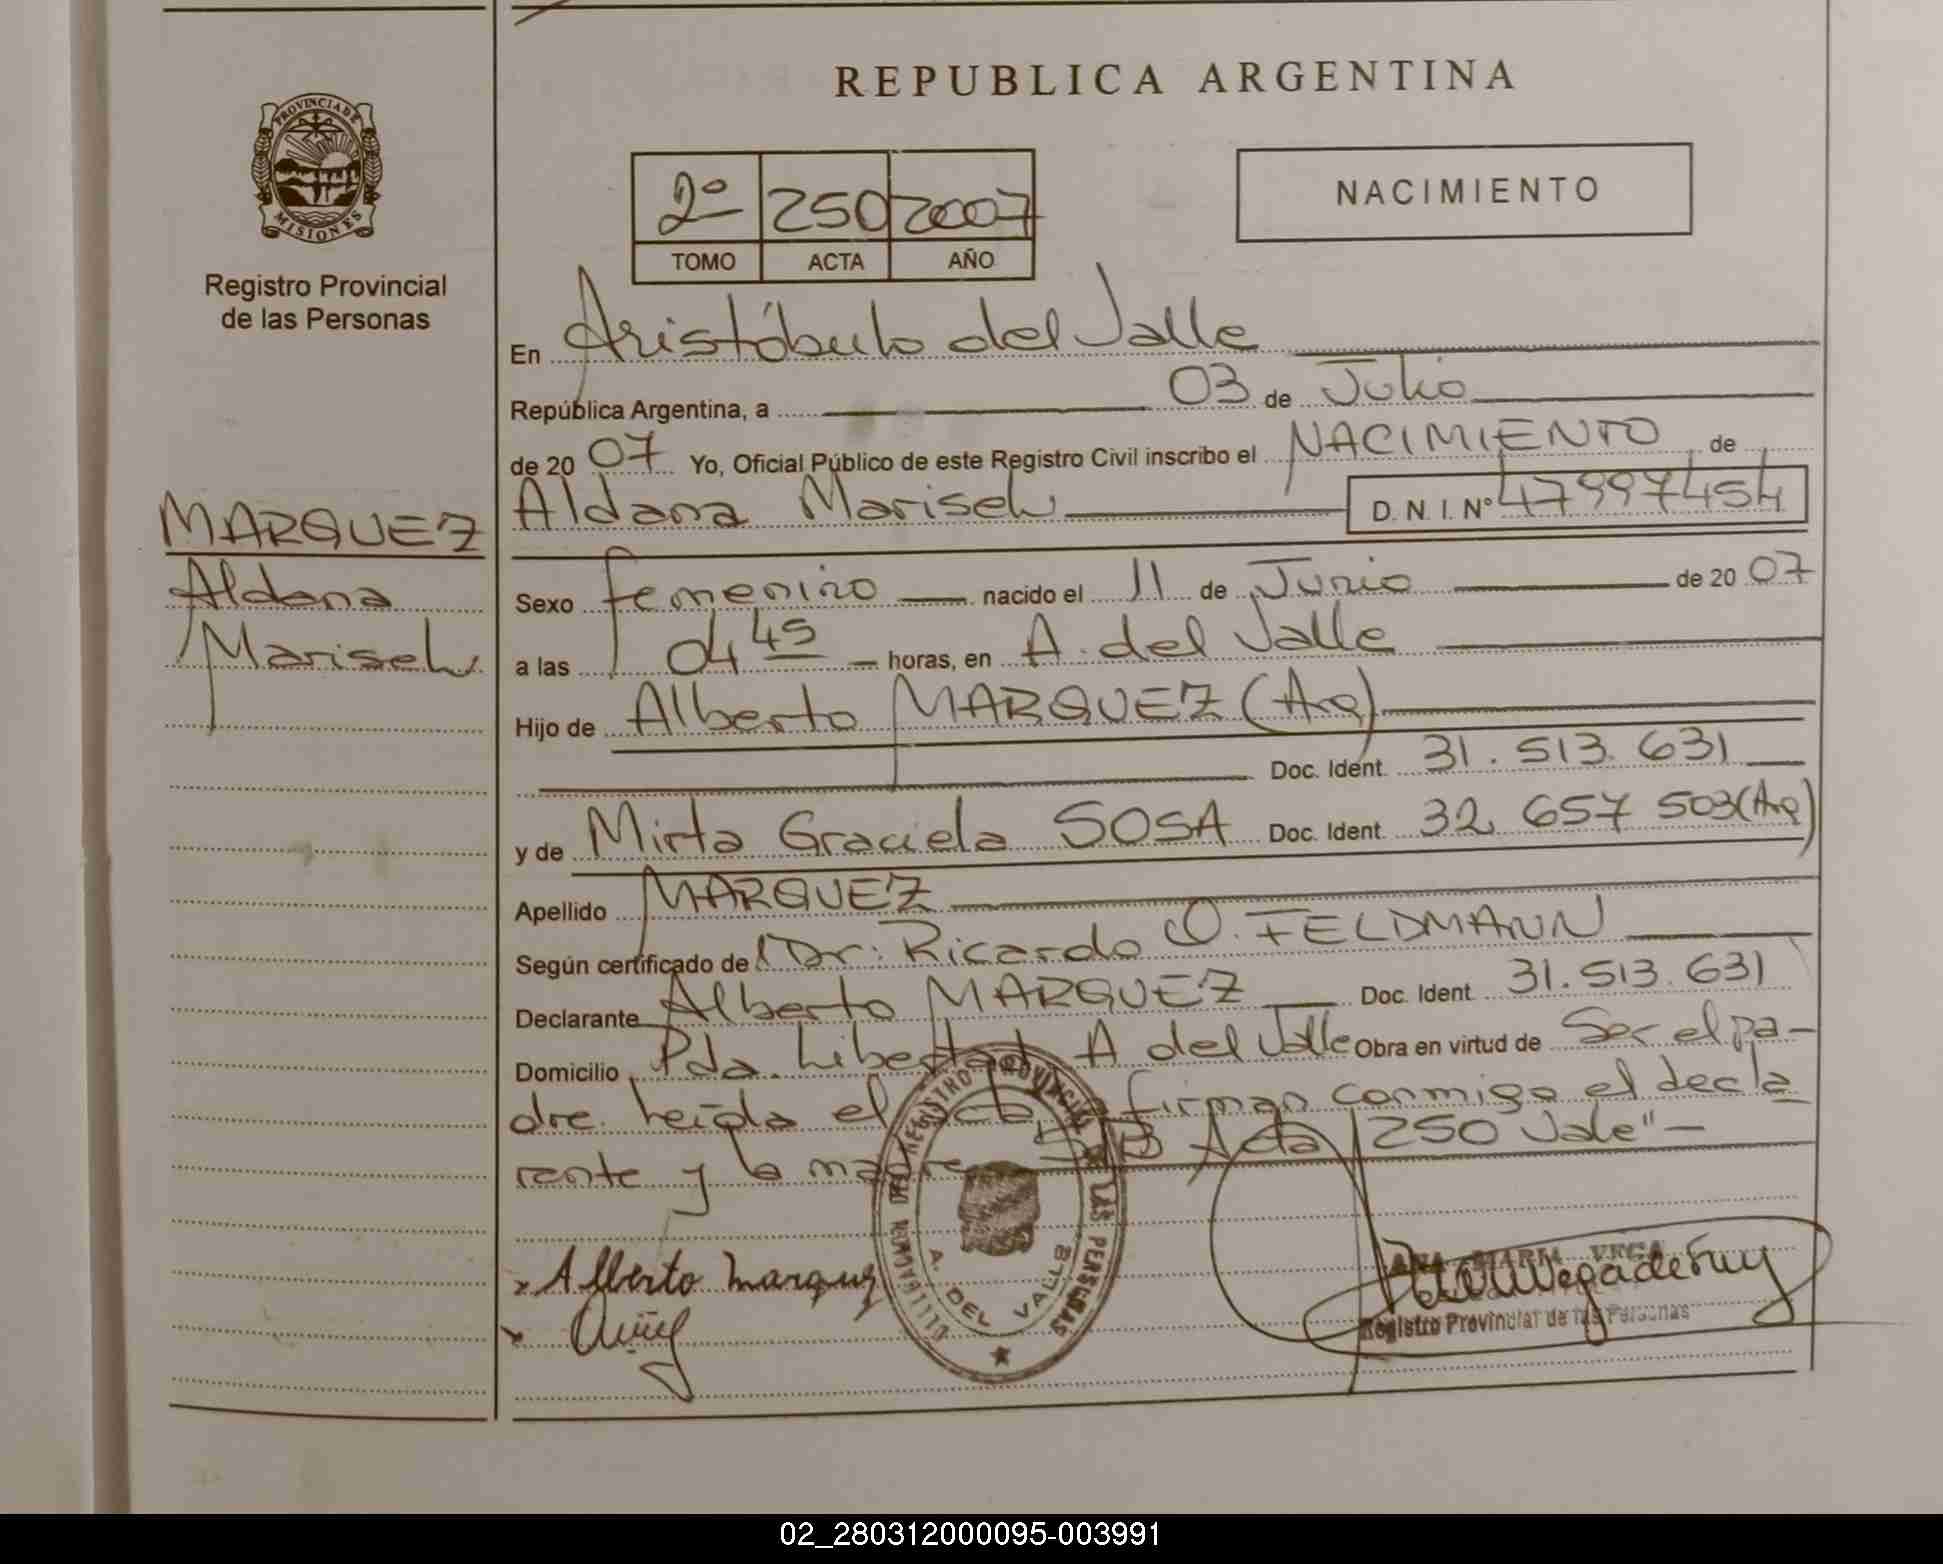 REPUBLICA ARGENTINA
PROVINCIA DE
MISIONES
Registro Provincial
de las Personas
2º 250 2007
TOMO ACTA AÑO
NACIMIENTO
En Aristóbulo del Valle
República Argentina, a 03 de Julio
de 20 07 Yo, Oficial Público de este Registro Civil inscribo el NACIMIENTO de
MARQUEZ
Aldana
Marisel
Aldana Marisel D. N. I. Nº 47997454
Sexo femenino nacido el 11 de Junio de 20 07
a las 04 45 horas, en A. del Valle
Hijo de Alberto MARQUEZ (Arg)
Doc. Ident. 31.513.631
y de Mirta Graciela SOSA Doc. Ident. 32.657 503 (Arg)
Apellido MARQUEZ
Según certificado de Dr: Ricardo O. FELDMANN
Declarante Alberto MARQUEZ Doc. Ident. 31.513.631
Domicilio Pda. Libertad A del Valle Obra en virtud de Ser el pa-
dre. Leída el acta firman conmigo el decla
rante y la madre S/B Acta 250 Vale"-
REGISTRO PROVINCIAL DE LAS PERSONAS
A. DEL VALLE
x Alberto marquez
ANA MARIA VEGA
Registro Provincial de las Personas
02_280312000095-003991